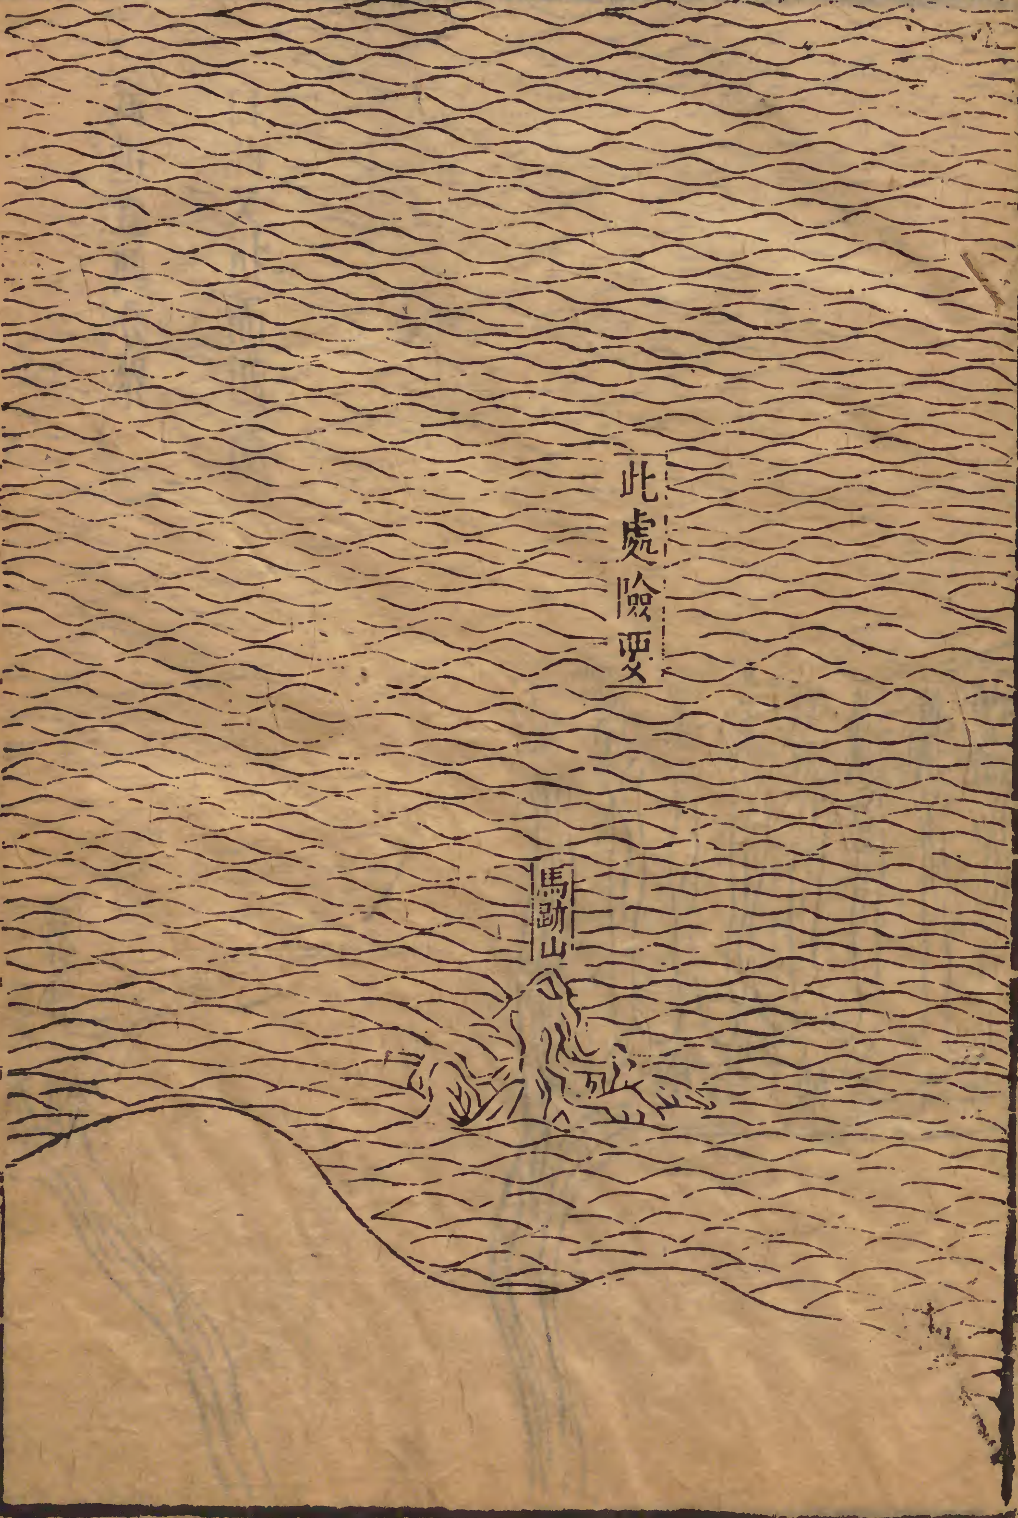 此處險要
馬跡山